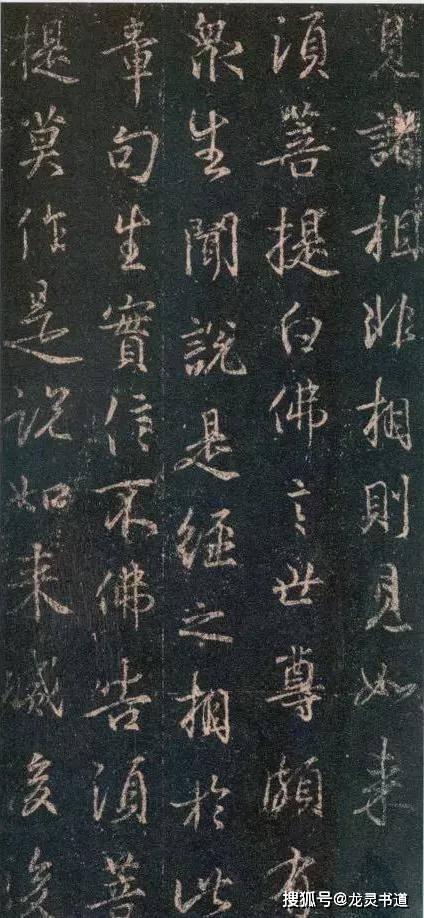 見諸相非相則見如来
須菩提白佛言世尊頗有
衆生聞說是經之相於此
章句生實信不佛告須菩
提莫作是說如来滅後後
搜狐号@龙灵书道